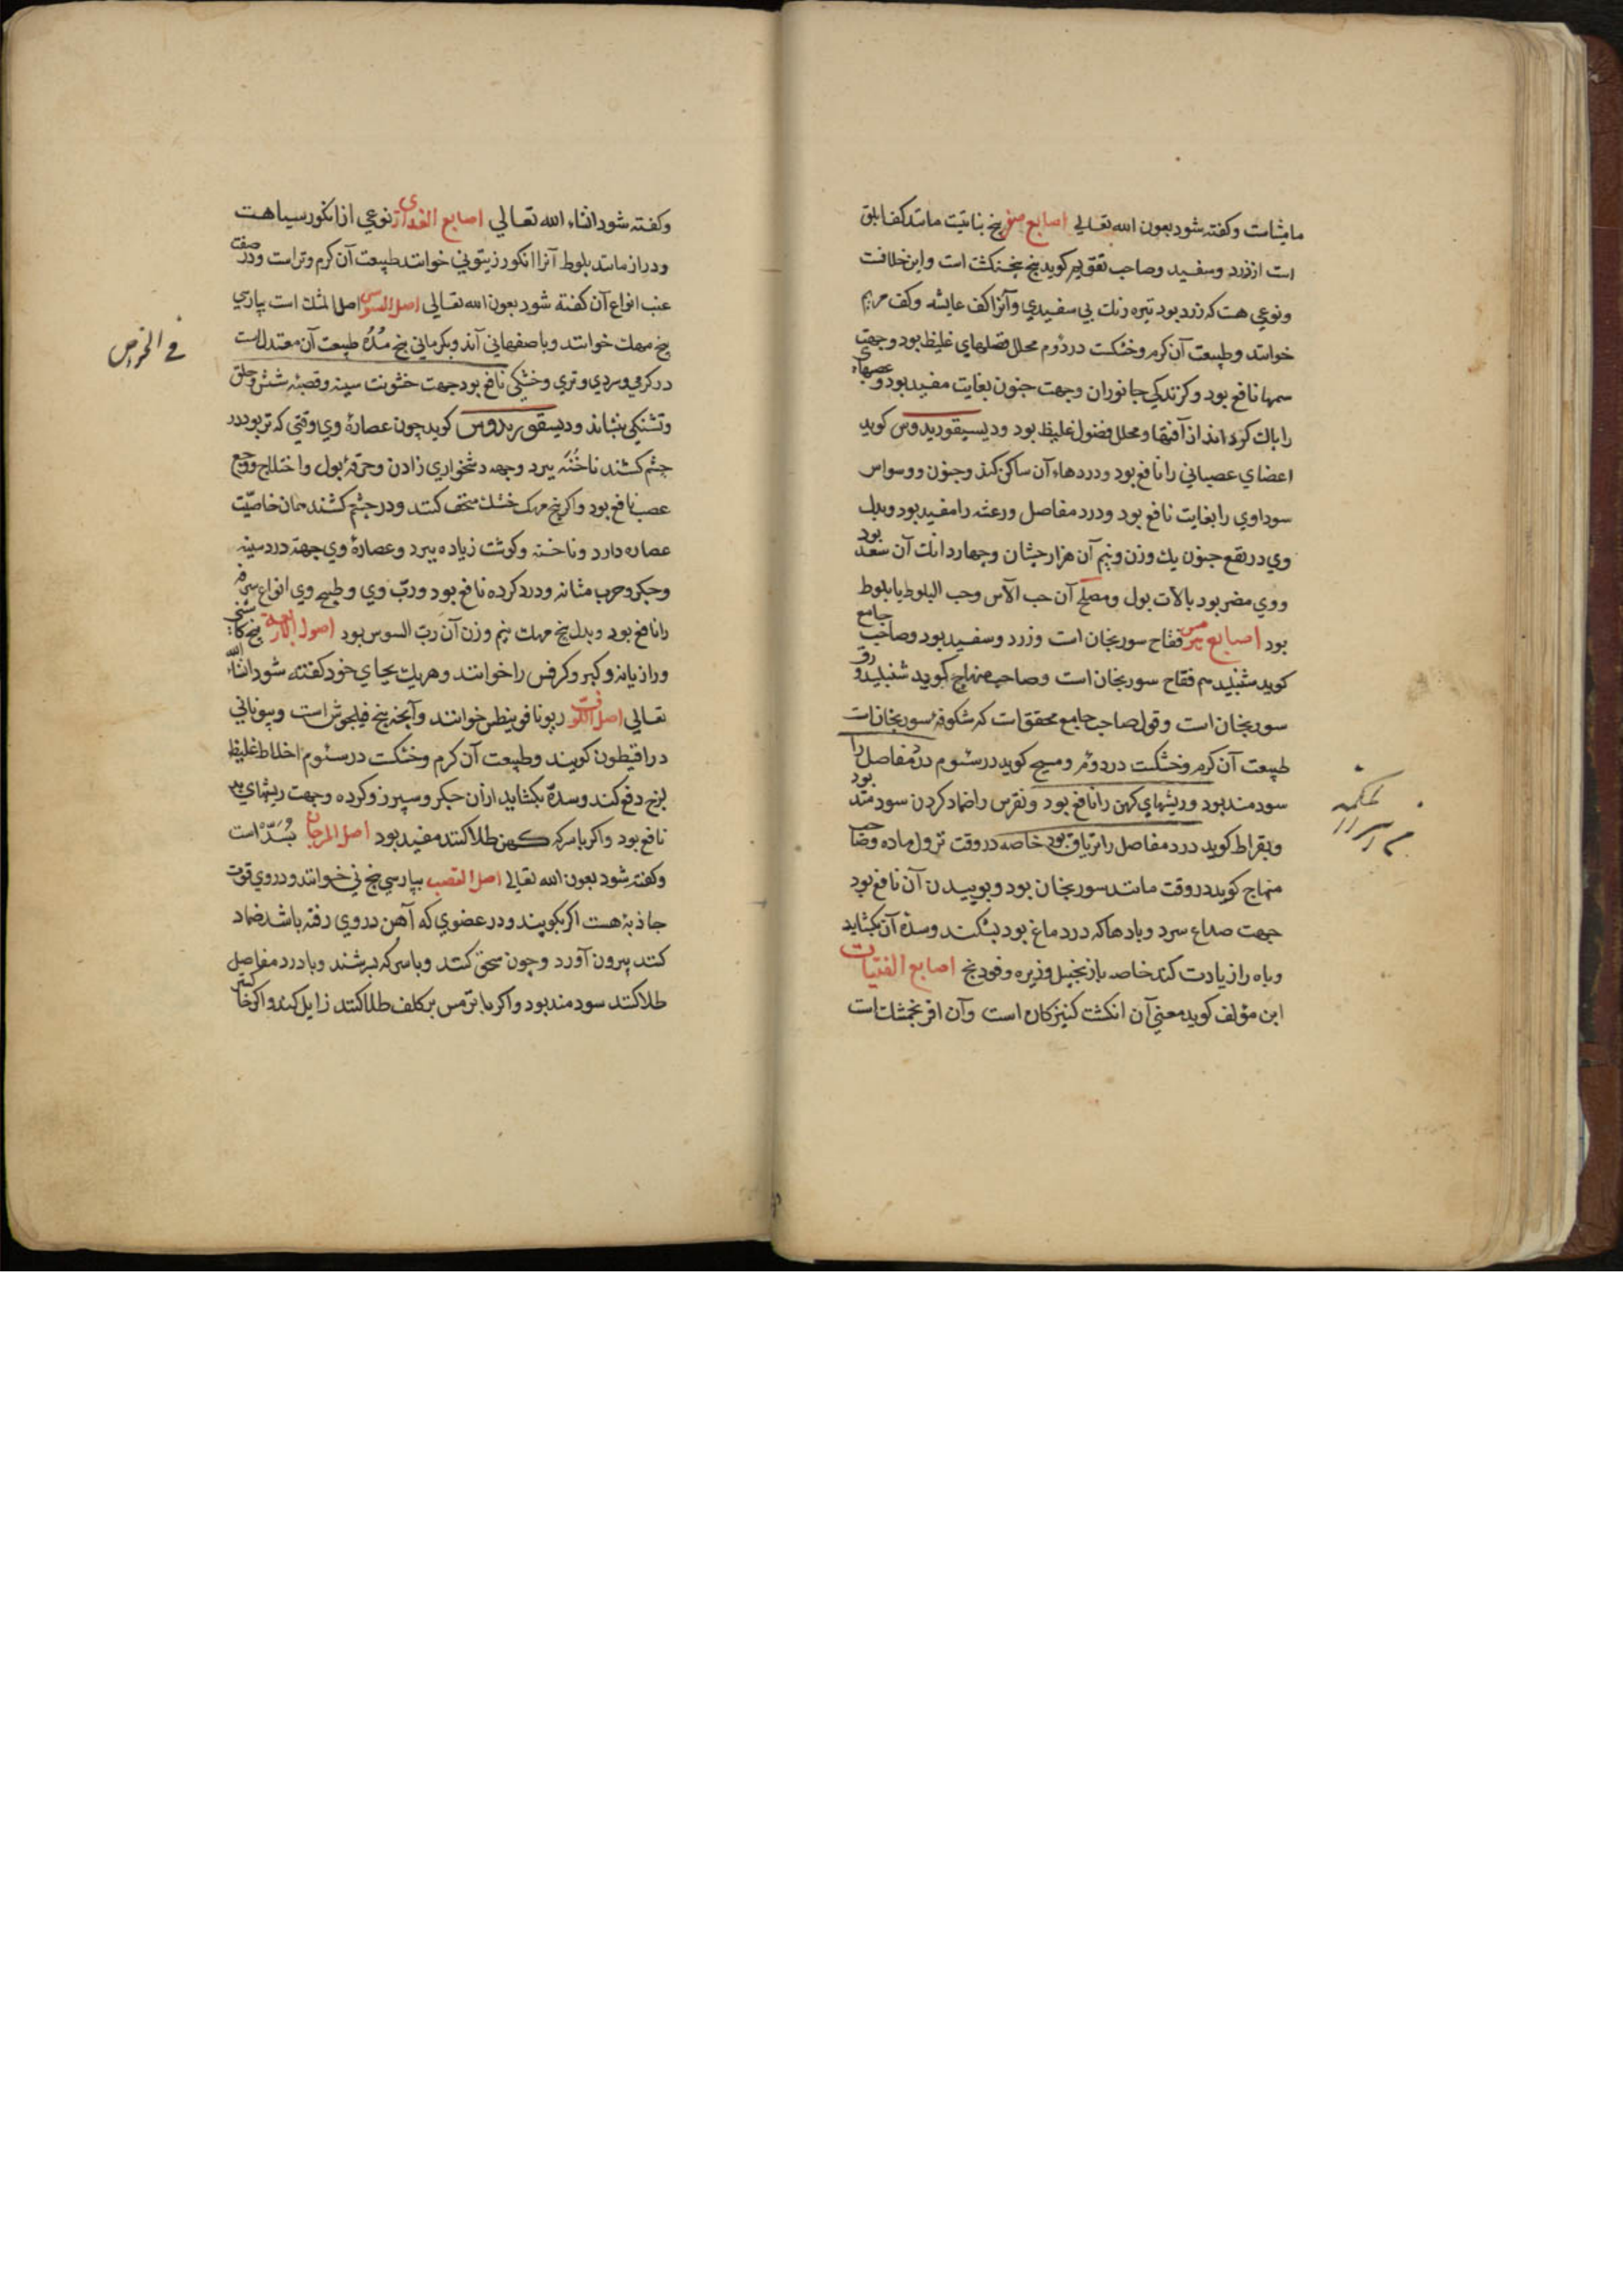 مامیثاست وکفته شود بعون الله تعالی اصابع صفر بیخ نباتیت مانند کف ابلق
است از زرد وسفید وصاحب تقویم کوید بیخ بنجنکشت است واین خلافت
ونوعی هست که زرد بود تیره رنك بی سفیدی وآنرا کف عایشه وکف مریم
خوانند وطبیعت آن کرم وخشکست در دوم محلل فضلهای غلیظ بود وجهت
سمها نافع بود وکزندکی جانوران وجهت جنون بغایت مفید بود وعصبهاء
را پاك کرداند از آفتها ومحلل فضول غلیظ بود ودیسیقوریدوس کوید
اعضای عصبانی را نافع بود ودردهاء آن ساکن کند وجنون ووسواس
سوداوی را بغایت نافع بود ودرد مفاصل ورعشه را مفید بود وبدل
وی در نفع جنون یك وزن ونیم آن هزارجشان وچهار دانك آن سعد بود
ووی مضر بود بآلات بول ومصلح آن حب الآس وحب البلوط یا بلوط
بود اصابع هرمس فقاح سورنجان است وزرد وسفید بود وصاحب جامع
کوید شنبلید هم فقاح سورنجان است وصاحب منهاج کوید شنبلید ورق
سورنجان است وقول صاحب جامع محقق است که شکوفهٔ سورنجانات
طبیعت آن کرم وخشکست در دوم ومسیح کوید در سئوم درد مفاصل را
سودمند بود وریشهای کهن را نافع بود ونقرس را ضماد کردن سودمند بود
وبقراط کوید درد مفاصل را تریاق بود خاصه در وقت نزول ماده وصاحب
منهاج کوید در وقت مانند سورنجان بود وبوییدن آن نافع بود
جهت صداع سرد وبادها که در دماغ بود بشکند وسدهٔ آن بکشاید
وباه را زیادت کند خاصه با زنجبیل وزیره وفودنج اصابع الفتیات
ابن مؤلف کوید معنی آن انکشت کنیزکان است وآن افرنجمشك است
وکفته شود انشاء الله تعالی اصابع العذاری نوعی از انکور سیاهت
ودراز مانند بلوط آنرا انکور زیتونی خوانند طبیعت آن کرم وتراست ودر صفت
عنب انواع آن کفته شود بعون الله تعالی اصل السوس اصل المثك است بپارسی
بیخ مهك خوانند وباصفهانی آنذ وبکرمانی بیخ مُدُه طبیعت آن معتدل است
در کرمی وسردی وتری وخشکی نافع بود جهت خشونت سینه وقصبهٔ شش وحلق
وتشنکی بنشاند ودیسقوریدوس کوید چون عصارهٔ وی وقتی که تر بود در
چشم کشند ناخُنَه ببرد وجهة دشخواری زادن وحرقهٔ بول واختلاج ووجع
عصب نافع بود واکر بیخ مهك خشك سحق کنند ودر چشم کشند همان خاصیّت
عصاره دارد وناخنه وکوشت زیاده ببرد وعصارهٔ وی جهة درد سینه
وجکر وجرب مثانه ودرد کرده نافع بود وربّ وی وطبیخ وی انواع سرفه
را نافع بود وبدل بیخ مهك نیم وزن آن ربّ السوس بود اصول الاربعة بیخ کاسنی
ورازیانه وکبر وکرفس را خوانند وهریك بجای خود کفته شود انشاء الله
تعالی اصل اللوف ریونافوینطس خوانند وآنچه بیخ فیلجوش است وبیونانی
دراقیطون کویند وطبیعت آن کرم وخشکست در سئوم اخلاط غلیظ
لزج دفع کند وسدهٔ بکشاید ازآن جکر وسپرز وکرده وجهت ریشهای بد
نافع بود واکر با سرکه کهن طلا کنند مفید بود اصل المرجان بُسَدّ است
وکفته شود بعون الله تعالی اصل القصب بپارسی بیخ نی خوانند ودر وی قوت
جاذبه هست اکر بکوبند ودر عضوی که آهن در وی رفته باشد ضماد
کنند بیرون آورد وچون سحق کنند وبا سرکه بسرشند وبا درد مفاصل
طلا کنند سودمند بود واکر با ترمس بر کلف طلا کنند زایل کند واکر خاکستر
فی الخراص